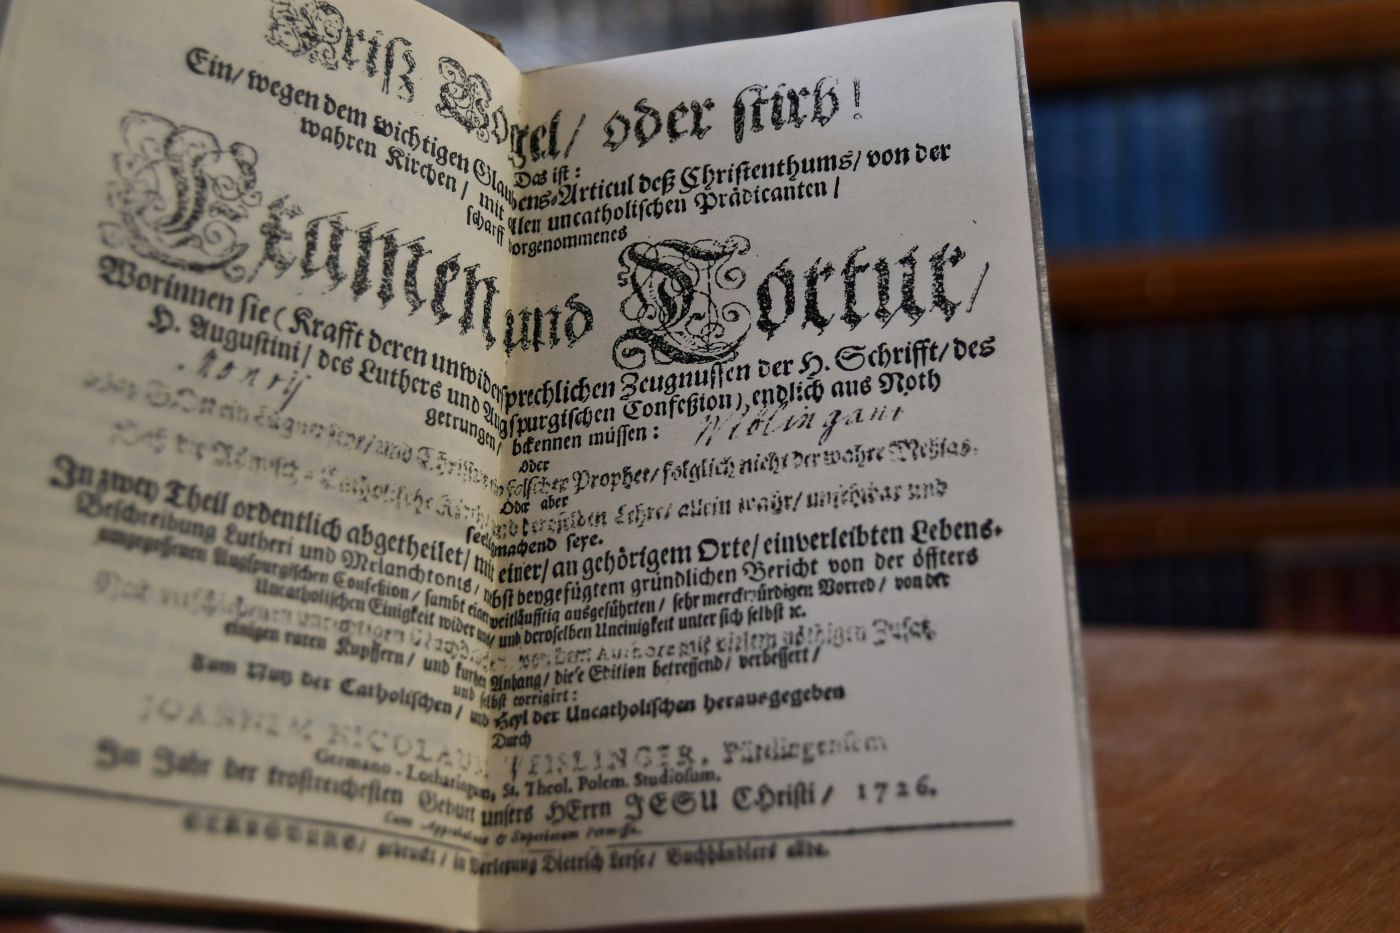 Friß Vogel/ oder stirb!
Das ist:
Ein/ wegen dem wichtigen Glaubens-Articul deß Christenthums/ von der
wahren Kirchen/ mit allen uncatholischen Prädicanten/
scharff vorgenommenes
Examen und Tortur/
Worinnen sie (Krafft deren unwidersprechlichen Zeugnussen der H. Schrifft/ des
H. Augustini/ des Luthers und Augspurgischen Confeßion) endlich aus Noth
getrungen/ bekennen müssen:
oder
falscher Prophet/ folglich nicht der wahre Meßias.
Oder aber
Daß die Römisch-Catholische Kirch/ und derselben Lehre/ allein wahr/ unfehlbar und
seeligmachend seye.
In zwey Theil ordentlich abgetheilet/ mit einer/ an gehörigem Orte/ einverleibten Lebens-
Beschreibung Lutheri und Melanchtonis/ nebst beygefügtem gründlichen Bericht von der öffters
umgegossenen Augspurgischen Confeßion/ sambt einer weitläufftig ausgeführten/ sehr merckwürdigen Vorred/ von der
Uncatholischen Einigkeit wider uns/ und deroselben Uneinigkeit unter sich selbst ꝛc.
von dem Authore mit vielem nöthigen Zusatz,
einigen raren Kupffern/ und kurtzen Anhang/ diese Edition betreffend/ verbessert/
und selbst corrigirt:
Zum Nutz der Catholischen/ und Heyl der Uncatholischen herausgegeben
Durch
JOANNEM NICOLAUM WEISLINGER, Püttlingensem
Germano-Lotharingum, St. Theol. Polem. Studiosum.
Im Jahr der trostreichesten Geburt unsers HErrn JESU CHristi/ 1726.
Cum Approbatione & Superiorum Permissu.
STRASBURG/ gedruckt/ in Verlegung Dietrich Lerse/ Buchhändlers allda.